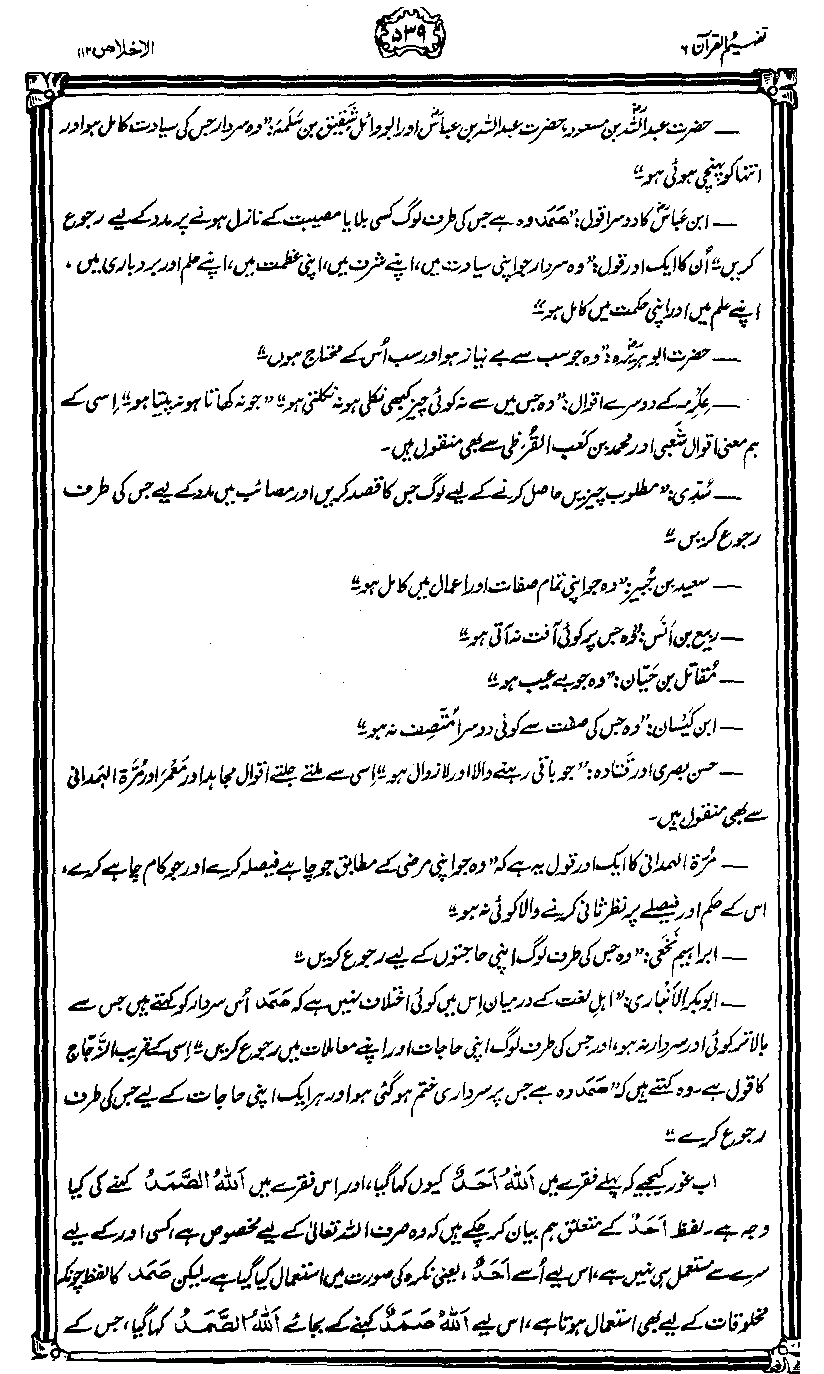 تفہیم القرآن ۶
۵۳۹
الاخلاص ۱۱۲
— حضرت عبداللہؓ بن مسعود، حضرت عبداللہ بن عباسؓ اور ابو وائل شَقیق بن سَلَمَہ: ”وہ سردار جس کی سیادت کامل ہو اور
انتہا کو پہنچی ہوئی ہو“
— ابن عباسؓ کا دوسرا قول: ”صَمَد وہ ہے جس کی طرف لوگ کسی بلا یا مصیبت کے نازل ہونے پر مدد کے لیے رجوع
کریں“ اُن کا ایک اور قول: ”وہ سردار جو اپنی سیادت میں، اپنے شرف میں، اپنی عظمت میں، اپنے حلم اور بردباری میں،
اپنے علم میں اور اپنی حکمت میں کامل ہو“
— حضرت ابوہریرہؓ: ”وہ جو سب سے بے نیاز ہو اور سب اُس کے محتاج ہوں“
— عِکرِمہ کے دوسرے اقوال: ”وہ جس میں سے نہ کوئی چیز کبھی نکلی ہو نہ نکلتی ہو“ ”جو نہ کھاتا ہو نہ پیتا ہو“ اِسی کے
ہم معنی اقوال شَعبِی اور محمد بن کَعب القُرَظی سے بھی منقول ہیں۔
— سُدّی: ”مطلوب چیزیں حاصل کرنے کے لیے لوگ جس کا قصد کریں اور مصائب میں مدد کے لیے جس کی طرف
رجوع کریں“
— سعید بن جُبیر: ”وہ جو اپنی تمام صفات اور اعمال میں کامل ہو“
— ربیع بن اَنَس: ”وہ جس پر کوئی آفت نہ آتی ہو“
— مُقاتل بن حَیّان: ”وہ جو بے عیب ہو“
— ابن کَیْسان: ”وہ جس کی صفت سے کوئی دوسرا مُتَّصِف نہ ہو“
— حسن بصری اور قَتادہ: ”جو باقی رہنے والا اور لازوال ہو“ اِسی سے ملتے جلتے اقوال مجاہد اور مَعْمَر اور مُرَّۃ الہَمدانی
سے بھی منقول ہیں۔
— مُرّۃ الہمدانی کا ایک اور قول یہ ہے کہ ”وہ جو اپنی مرضی کے مطابق جو چاہے فیصلہ کرے اور جو کام چاہے کرے،
اس کے حکم اور فیصلے پر نظر ثانی کرنے والا کوئی نہ ہو“
— ابراہیم نَخَعی: ”وہ جس کی طرف لوگ اپنی حاجتوں کے لیے رجوع کریں“
— ابوبکر الاَنْباری: ”اہلِ لغت کے درمیان اس میں کوئی اختلاف نہیں ہے کہ صَمَد اُس سردار کو کہتے ہیں جس سے
بالاتر کوئی اور سردار نہ ہو، اور جس کی طرف لوگ اپنی حاجات اور اپنے معاملات میں رجوع کریں“ اِسی کے قریب الزّجاج
کا قول ہے۔ وہ کہتے ہیں کہ ”صَمَد وہ ہے جس پر سرداری ختم ہو گئی ہو اور ہر ایک اپنی حاجات کے لیے جس کی طرف
رجوع کرے“
اب غور کیجیے کہ پہلے فقرے میں اَللہُ اَحَدٌ کیوں کہا گیا، اور اس فقرے میں اَللہُ الصَّمَدُ کہنے کی کیا
وجہ ہے۔ لفظ اَحَدٌ کے متعلق ہم بیان کر چکے ہیں کہ وہ صرف اللہ تعالیٰ کے لیے مخصوص ہے، کسی اور کے لیے
سرے سے مستعمل ہی نہیں ہے، اس لیے اُسے اَحَدٌ، یعنی نکرہ کی صورت میں استعمال کیا گیا ہے۔ لیکن صَمَد کا لفظ چونکہ
مخلوقات کے لیے بھی استعمال ہوتا ہے، اس لیے اَللہُ صَمَدٌ کہنے کے بجائے اَللہُ الصَّمَدُ کہا گیا، جس کے